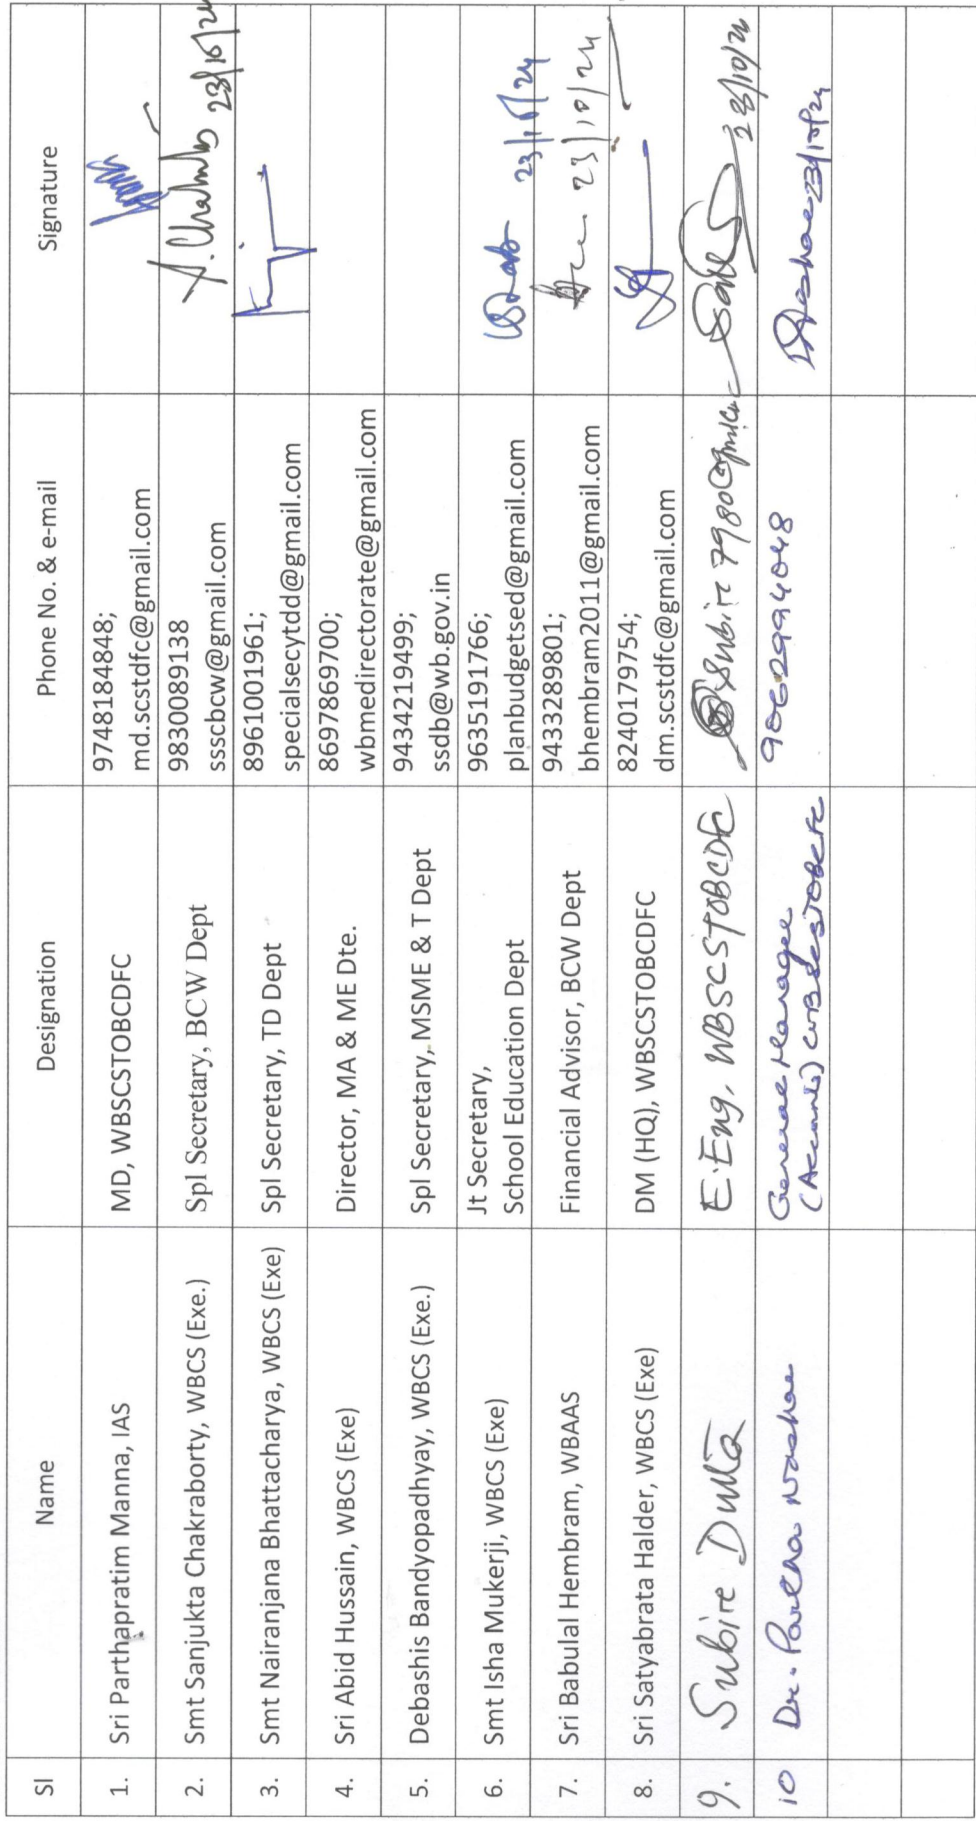 Sl Name Designation Phone No. & e-mail Signature
1. Sri Parthapratim Manna, IAS MD, WBSCSTOBCDFC 9748184848;
md.scstdfc@gmail.com
2. Smt Sanjukta Chakraborty, WBCS (Exe.) Spl Secretary, BCW Dept 9830089138
ssscbcw@gmail.com 23/10/24
3. Smt Nairanjana Bhattacharya, WBCS (Exe) Spl Secretary, TD Dept 8961001961;
specialsecytdd@gmail.com
4. Sri Abid Hussain, WBCS (Exe) Director, MA & ME Dte. 8697869700;
wbmedirectorate@gmail.com
5. Debashis Bandyopadhyay, WBCS (Exe.) Spl Secretary, MSME & T Dept 9434219499;
ssdb@wb.gov.in
6. Smt Isha Mukerji, WBCS (Exe) Jt Secretary, 9635191766;
School Education Dept planbudgetsed@gmail.com 23/10/24
7. Sri Babulal Hembram, WBAAS Financial Advisor, BCW Dept 9433289801;
bhembram2011@gmail.com 23/10/24
8. Sri Satyabrata Halder, WBCS (Exe) DM (HQ), WBSCSTOBCDFC 8240179754;
dm.scstdfc@gmail.com
9. Subir Dutta E.Eng, WBSCSTOBCDFC 23/10/24
10 Dr. Partha General Manager 9062994048 23/10/24
(Accounts)